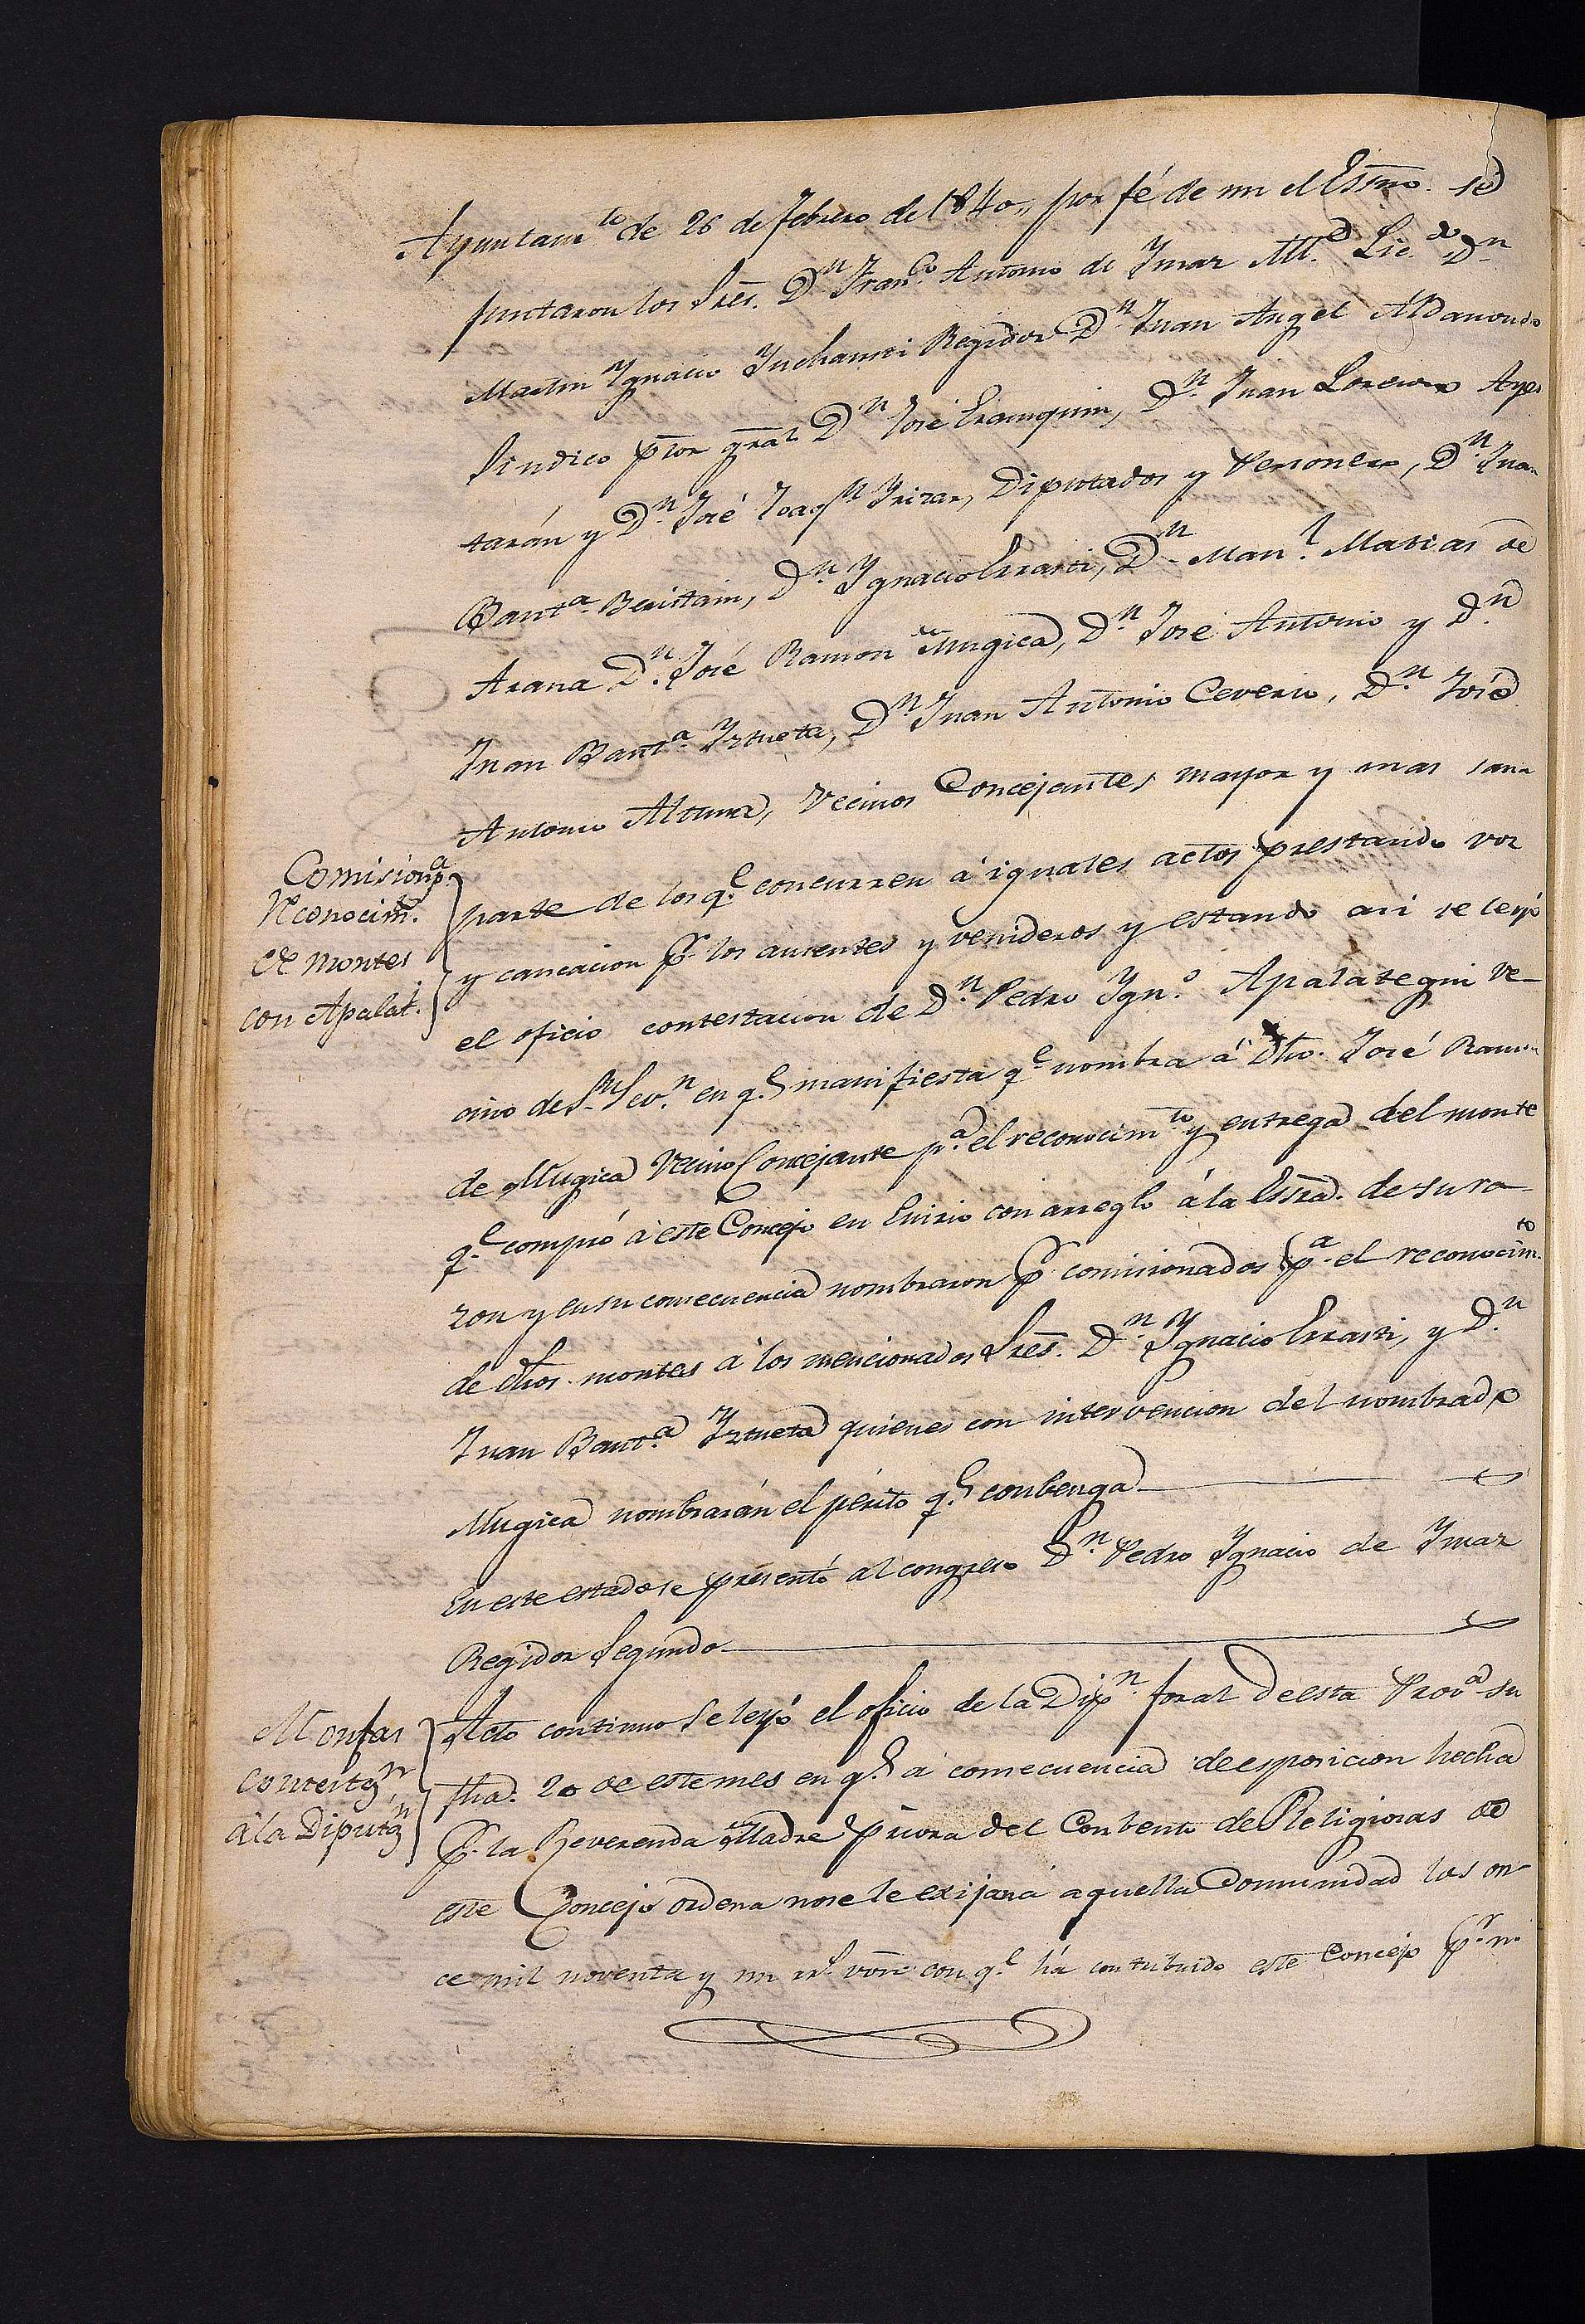 Ayuntam.to de 26 de febrero de 1840,, por fé de mi el Essno. se
juntaron los Sres. Dn. Fran.co Antonio de Ymaz All.e Lic.do Dn
Martin Ygnacio Ynchausti Regidor Dn. Juan Angel Aldamondo
Sindico pror gral Dn José Erauzquin, Dn. Juan Lorenzo Ayes
tarán y Dn. José Joaqn. Yrizar, Diputados y Personero, Dn. Juan
Baut.a Beristain, Dn. Ygnacio Errasti, Dn. Man.l Matias de
Arana Dn. José Ramon de Mugica, Dn. José Antonio y Dn
Juan Baut.a Yztueta, Dn. Juan Antonio Ceverio, Dn. José
Antonio Altuna, Vecinos Concejantes mayor y mas sana
Comision p.a
Reconocim.to
de Montes
con Apalat.
parte de los q.e concurren á iguales actos prestando voz
y caucacion p.r los ausentes y venideros y estando asi se leyó
el oficio contestacion de Dn. Pedro Ygn.o Apalategui ve-
cino de Sn. Sevn. en q.e manifiesta q.e nombra á Dho. José Ramon
de Mugica Vecino Concejante p.a el reconocim.to y entrega del monte
q.e compró á este Concejo en Enirio con arreglo á la Essra. de su ra-
zon y en su consecuencia nombraron p.r comisionados p.a el reconocim.to
de dhos. montes á los mencionados Sres. Dn. Ygnacio Errasti, y Dn.
Juan Baut.a Yztueta quienes con intervencion del nombrado
Mugica nombrarán el perito q.e conbenga
En este estado se presentó al congreso Dn. Pedro Ygnacio de Ymaz
Regidor Segundo
Monjas
contestn.
á la Diputn.
Acto continuo se leyó el oficio de la Dipn. foral de esta Prov.a su
fha. 20 de este mes en q.e á consecuencia de esposicion hecha
p.r la Reverenda Madre Priora del Conbento de Religiosas de
este Concejo ordena no se le exijan á aquella Comunidad los on-
ce mil noventa y un rs. von con q.e há contribuido este Concejo p.r